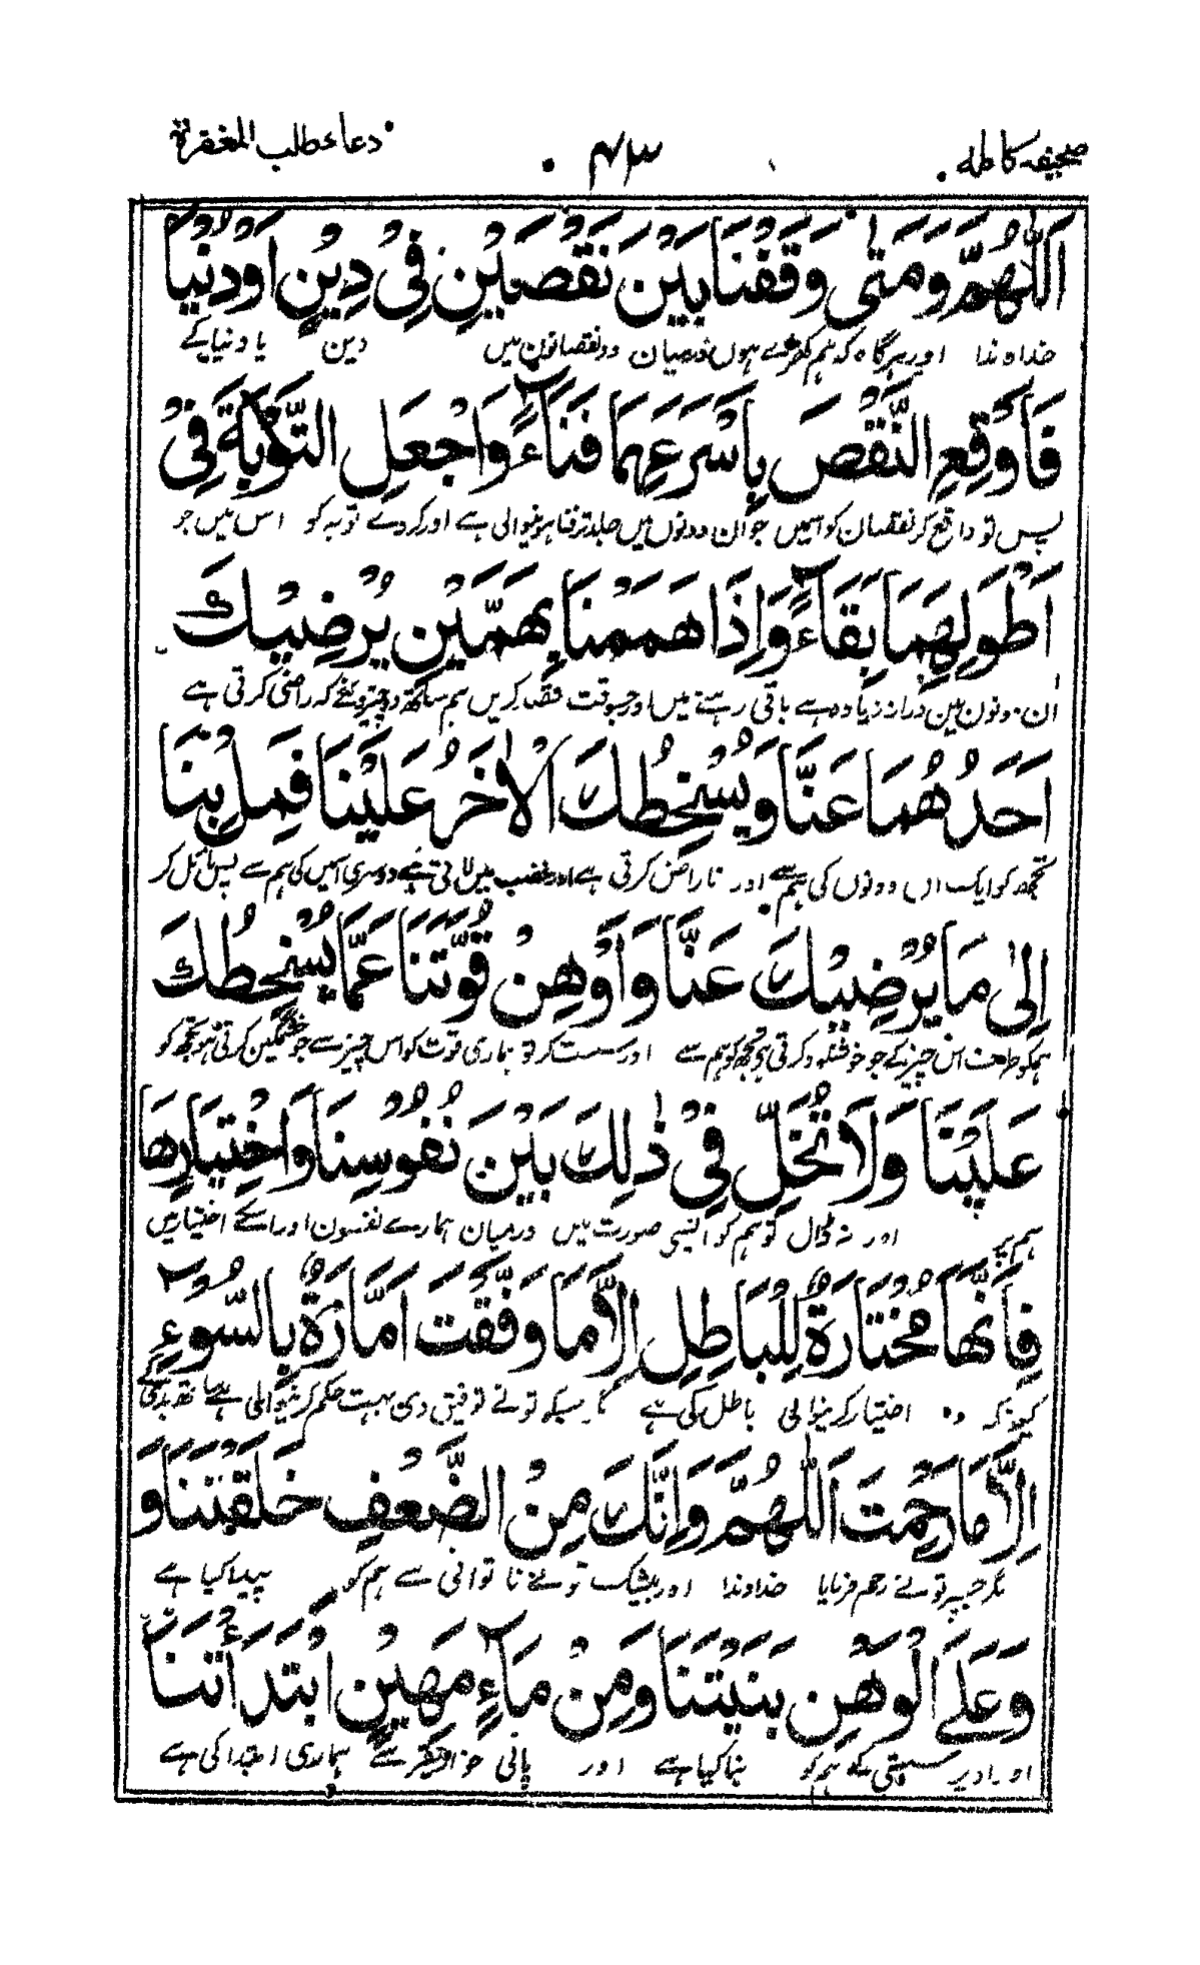 صحیفہ کاملہ
۴۳
دعاء طلب المغفرة
اَللّٰهُمَّ وَمَتٰى وَقَفْنَا بَيْنَ نَقْصَيْنِ فِىْ دِيْنٍ اَوْ دُنْيَا
خداوندا اور ہرگاہ کہ ہم کھڑے ہوں درمیان دو نقصانوں میں دین یا دنیا کے
فَاَوْقِعِ النَّقْصَ بِاَسْرَعِهِمَا فَنَاءً وَاجْعَلِ التَّوْبَةَ فِىْ
پس تو واقع کر نقصان کو اسمیں جو ان دونوں میں جلد تر فنا ہونیوالی ہے اور کردے توبہ کو اس میں جو
اَطْوَلِهِمَا بَقَاءً وَاِذَا هَمَمْنَا بِهَمَّيْنِ يُرْضِيْكَ
ان دونوں میں دراز زیادہ ہے باقی رہنے میں اور جسوقت قصد کریں ہم ساتھ دو چیزوں کے کہ راضی کرتی ہے
اَحَدُهُمَا عَنَّا وَيُسْخِطُكَ الْاٰخَرُ عَلَيْنَا فَمِلْ بِنَا
تجھ کو ایک ان دونوں کی ہم سے اور ناراض کرتی ہے اور غضب میں لاتی ہے دوسری اسمیں کی ہم سے پس مائل کر
اِلٰى مَا يُرْضِيْكَ عَنَّا وَاَوْهِنْ قُوَّتَنَا عَمَّا يُسْخِطُكَ
ہمکو طرف اس چیز کے جو خوشنود کرتی ہو تجھ کو ہم سے اور سست کر تو ہماری قوت کو اس چیز سے جو خشمگین کرتی ہو تجھ کو
عَلَيْنَا وَلَا تُخَلِّ فِىْ ذٰلِكَ بَيْنَ نُفُوْسِنَا وَاخْتِيَارِهَا
ہم پر اور نہ ڈال تو ہم کو ایسی صورت میں درمیان ہمارے نفسون اور اسکے اختیار میں
فَاِنَّهَا مُخْتَارَةٌ لِلْبَاطِلِ اِلَّا مَا وَفَّقْتَ اَمَّارَةٌ بِالسُّوْءِ
کیونکہ وہ اختیار کرنیوالی باطل کی ہے مگر جسکو تو نے توفیق دی بہت حکم کرنیوالی ہے ساتھ بدی کے
اِلَّا مَا رَحِمْتَ اَللّٰهُمَّ وَاِنَّكَ مِنَ الضَّعْفِ خَلَقْتَنَا وَ
مگر جسپر تو نے رحم فرمایا خداوندا اور بیشک تو نے ناتوانی سے ہم کو پیدا کیا ہے
وَعَلَى الْوَهْنِ بَنَيْتَنَا وَمِنْ مَآءٍ مَهِيْنٍ ابْتَدَأْتَنَا
اور اوپر سستی کے ہم کو بنا کیا ہے اور پانی سے ہماری ابتدا کی ہے